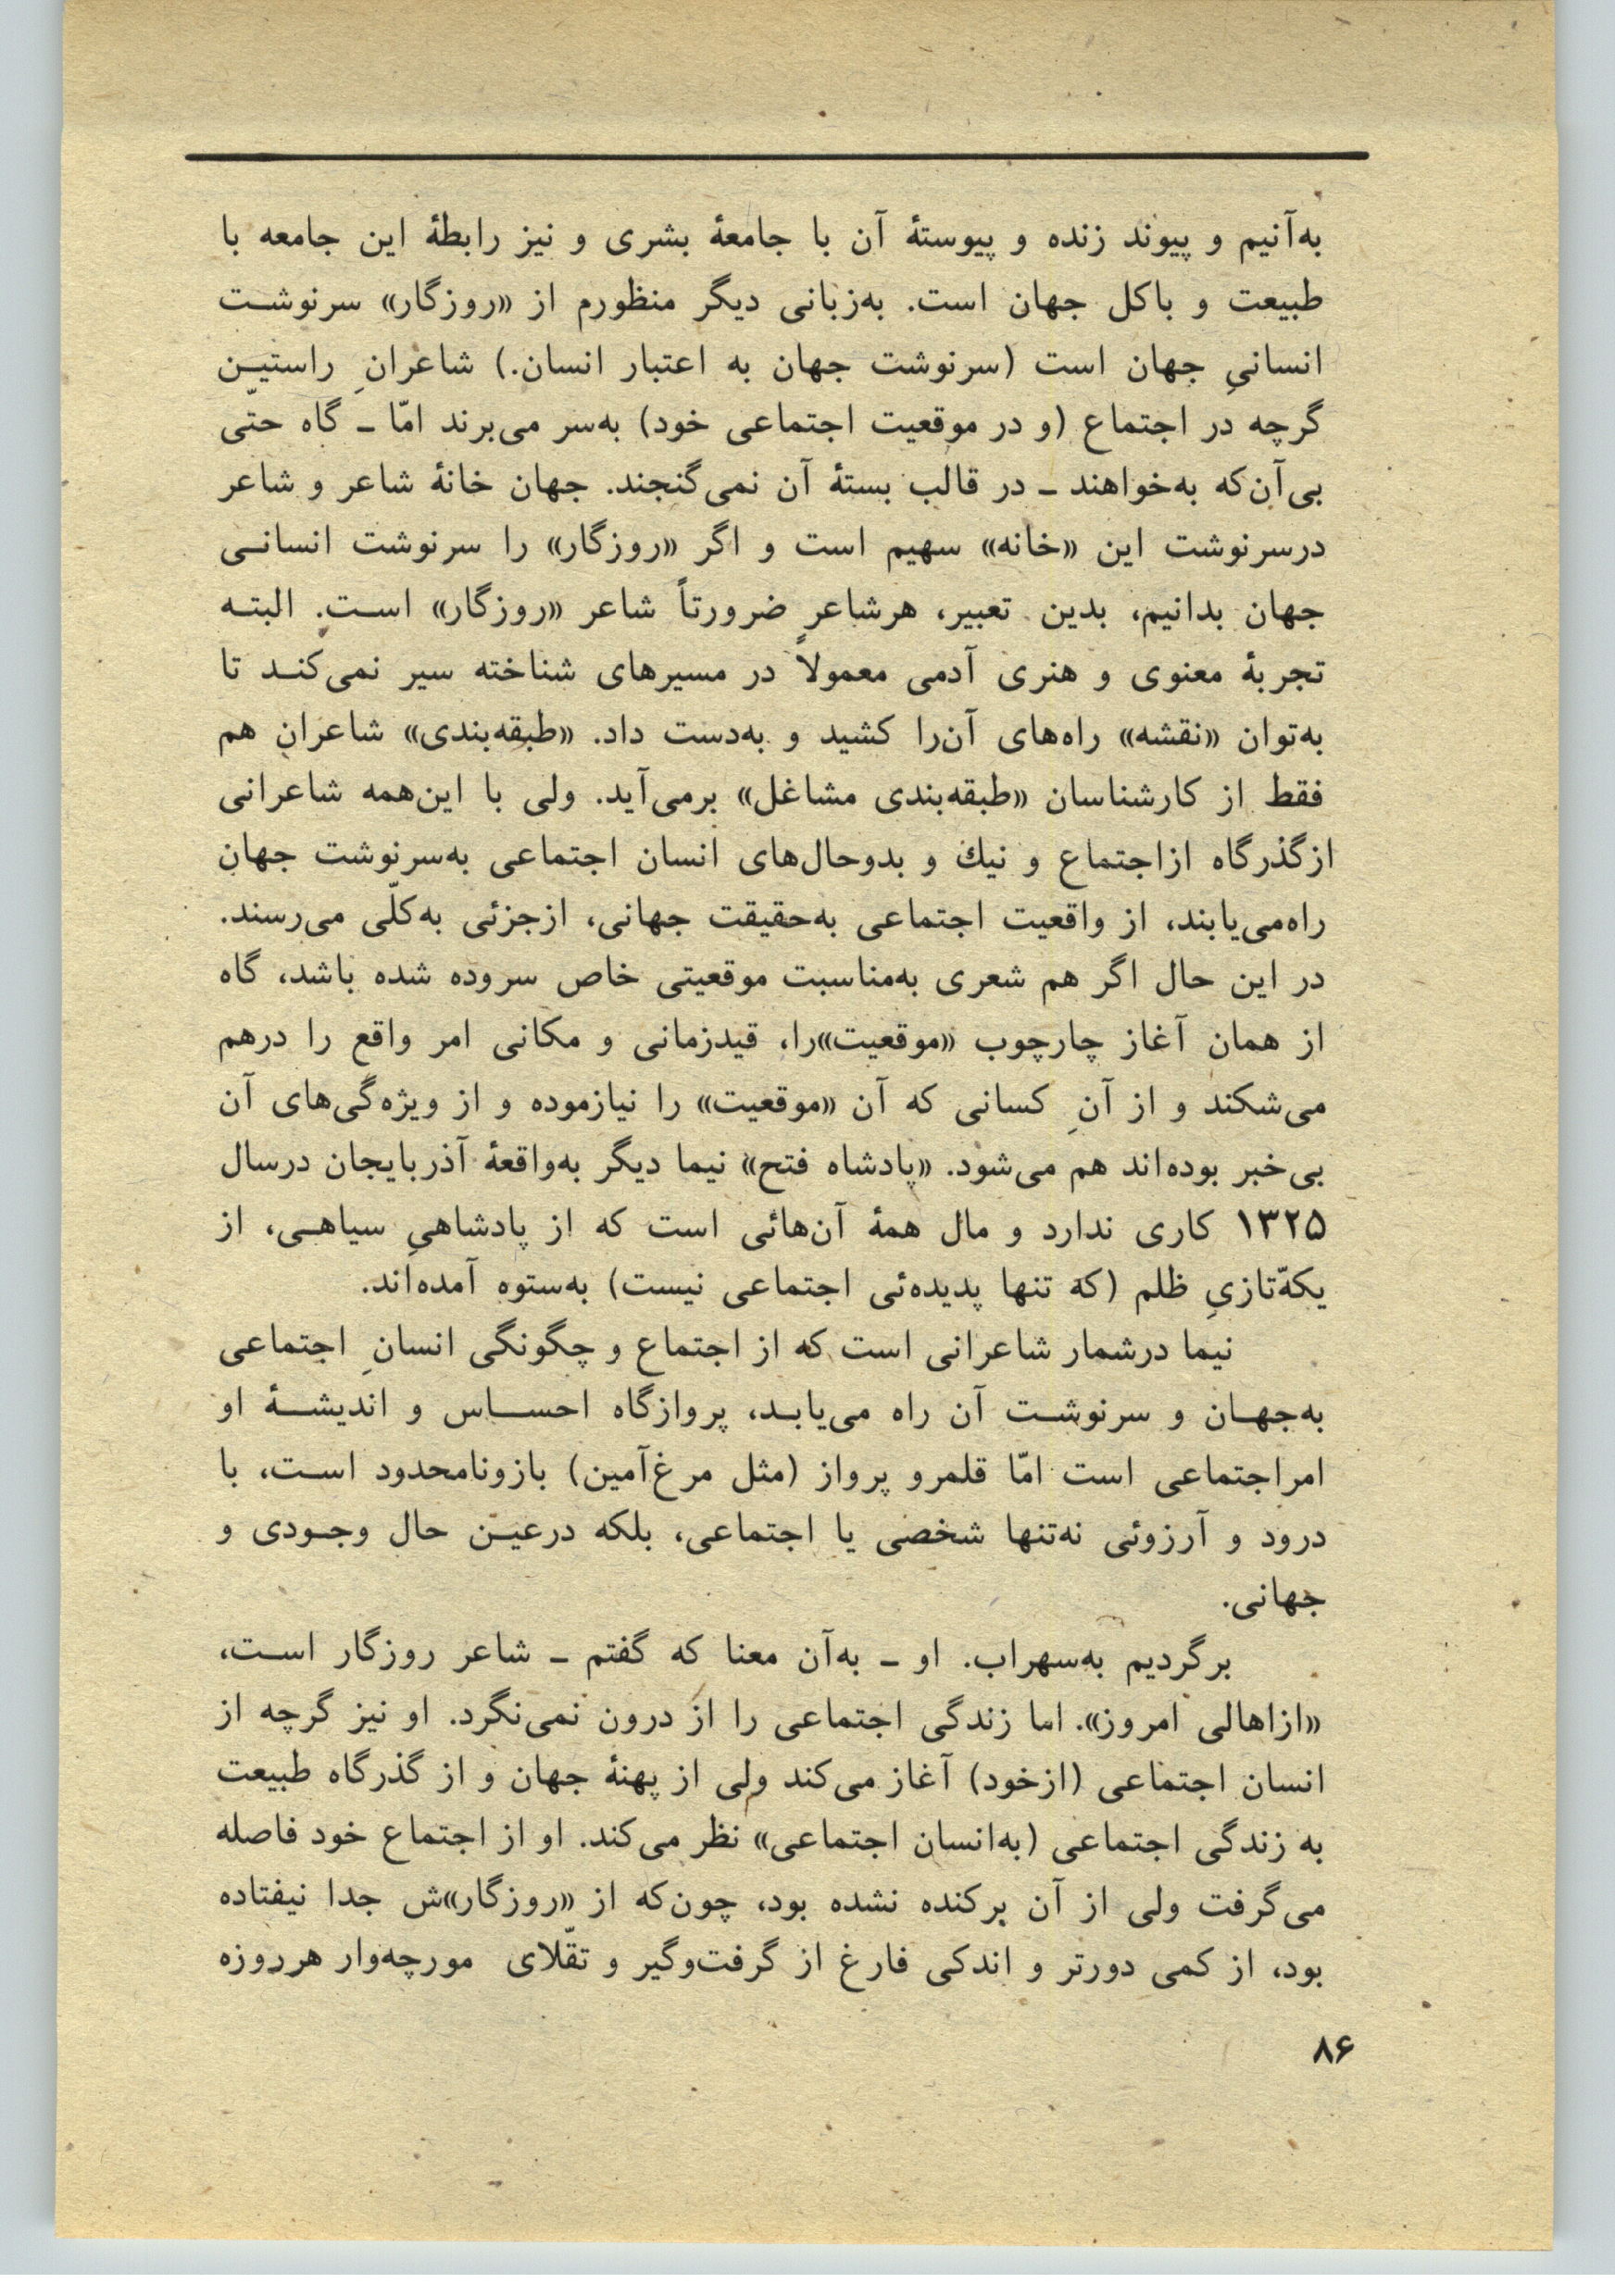 به‌آنیم و پیوند زنده و پیوستهٔ آن با جامعهٔ بشری و نیز رابطهٔ این جامعه با
طبیعت و باکل جهان است. به‌زبانی دیگر منظورم از «روزگار» سرنوشت
انسانیِ جهان است (سرنوشت جهان به اعتبار انسان.) شاعرانِ راستین
گرچه در اجتماع (و در موقعیت اجتماعی خود) به‌سر می‌برند امّا ـ گاه حتّی
بی‌آن‌که به‌خواهند ـ در قالب بستهٔ آن نمی‌گنجند. جهان خانهٔ شاعر و شاعر
درسرنوشت این «خانه» سهیم است و اگر «روزگار» را سرنوشت انسانی
جهان بدانیم، بدین تعبیر، هرشاعر ضرورتاً شاعر «روزگار» است. البته
تجربهٔ معنوی و هنری آدمی معمولاً در مسیرهای شناخته سیر نمی‌کند تا
به‌توان «نقشه» راه‌های آن‌را کشید و به‌دست داد. «طبقه‌بندی» شاعران هم
فقط از کارشناسان «طبقه‌بندی مشاغل» برمی‌آید. ولی با این‌همه شاعرانی
ازگذرگاه ازاجتماع و نیك و بدوحال‌های انسان اجتماعی به‌سرنوشت جهان
راه‌می‌یابند، از واقعیت اجتماعی به‌حقیقت جهانی، ازجزئی به‌کلّی می‌رسند.
در این حال اگر هم شعری به‌مناسبت موقعیتی خاص سروده شده باشد، گاه
از همان آغاز چارچوب «موقعیت»را، قیدزمانی و مکانی امر واقع را درهم
می‌شکند و از آنِ کسانی که آن «موقعیت» را نیازموده و از ویژه‌گی‌های آن
بی‌خبر بوده‌اند هم می‌شود. «پادشاه فتح» نیما دیگر به‌واقعهٔ آذربایجان درسال
۱۳۲۵ کاری ندارد و مال همهٔ آن‌هائی است که از پادشاهیِ سیاهی، از
یکه‌ّتازیِ ظلم (که تنها پدیده‌ئی اجتماعی نیست) به‌ستوه آمده‌اند.
نیما درشمار شاعرانی است که از اجتماع و چگونگی انسانِ اجتماعی
به‌جهان و سرنوشت آن راه می‌یابد، پروازگاه احساس و اندیشهٔ او
امراجتماعی است امّا قلمرو پرواز (مثل مرغ‌آمین) بازونامحدود است، با
درود و آرزوئی نه‌تنها شخصی یا اجتماعی، بلکه درعین حال وجودی و
جهانی.
برگردیم به‌سهراب. او ـ به‌آن معنا که گفتم ـ شاعر روزگار است،
«ازاهالی امروز». اما زندگی اجتماعی را از درون نمی‌نگرد. او نیز گرچه از
انسان اجتماعی (ازخود) آغاز می‌کند ولی از پهنهٔ جهان و از گذرگاه طبیعت
به زندگی اجتماعی (به‌انسان اجتماعی» نظر می‌کند. او از اجتماع خود فاصله
می‌گرفت ولی از آن برکنده نشده بود، چون‌که از «روزگار»ش جدا نیفتاده
بود، از کمی دورتر و اندکی فارغ از گرفت‌وگیر و تقّلای مورچه‌وار هرروزه
۸۶